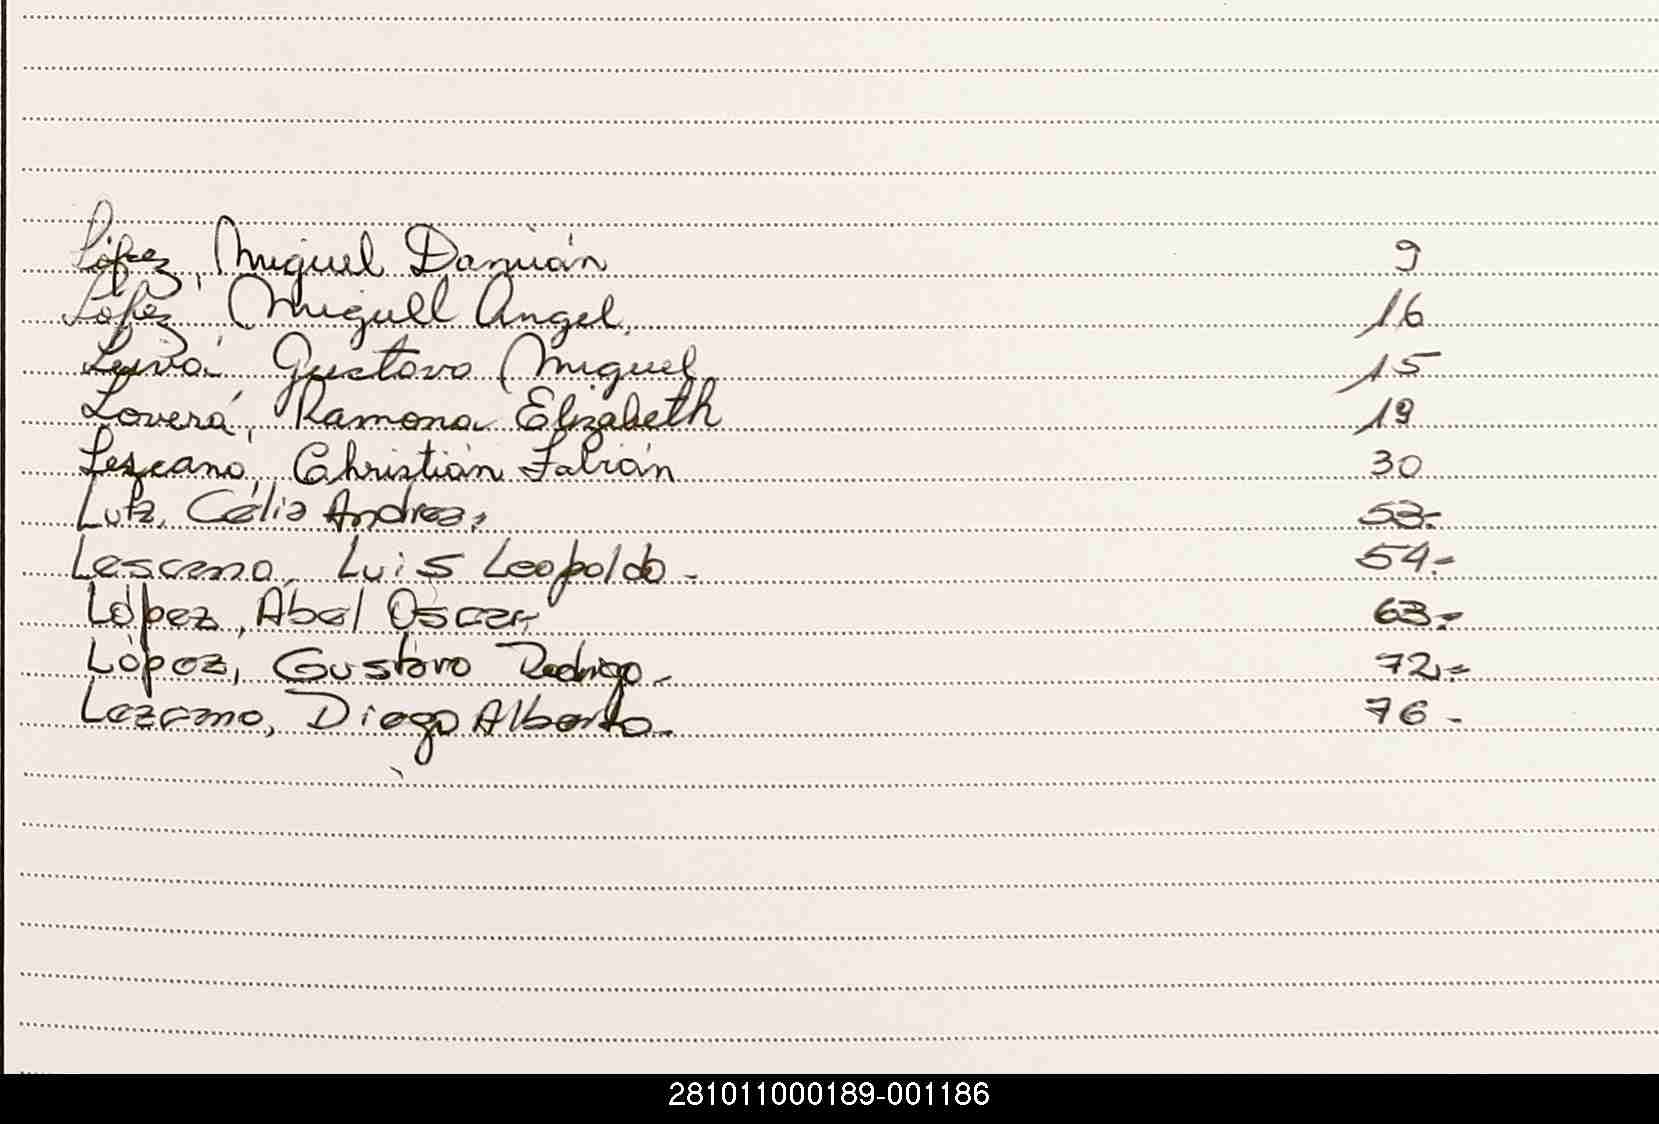 López, Miguel Damián 9
López Miguel Angel, 16
Leiva Gustavo Miguel 15
Lovera, Ramona Elizabeth 19
Lezcano, Christián Fabián 30
Lutz, Célia Andrea, 53.-
Lescano, Luis Leopoldo - 54.-
López, Abel Oscar 63.-
López, Gustavo Rodrigo - 72.-
Lezcano, Diego Alberto - 76 -
281011000189-001186